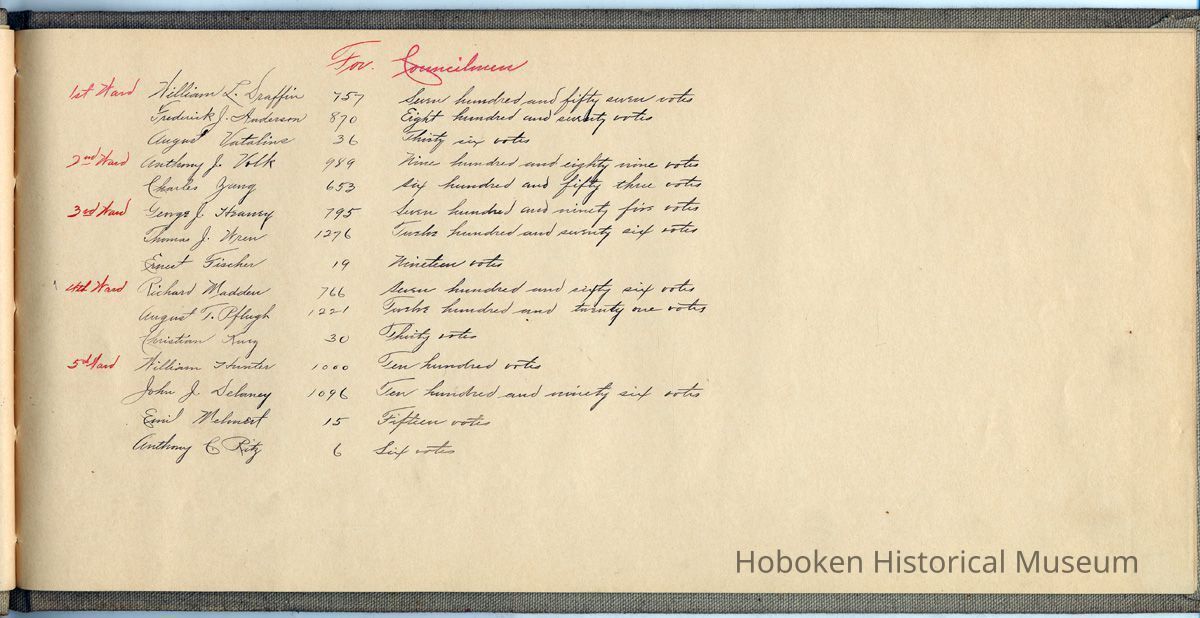 For. Councilmen
1st Ward William L. Draffin 757 Seven hundred and fifty seven votes
Frederick J. Anderson 870 Eight hundred and seventy votes
August Vatalins 36 Thirty six votes
2nd Ward Anthony J. Volk 989 Nine hundred and eighty nine votes
Charles Zang 653 Six hundred and fifty three votes
3rd Ward George J. Heaney 795 Seven hundred and ninety five votes
Thomas J. Wren 1276 Twelve hundred and seventy six votes
Ernest Fischer 19 Nineteen votes
4th Ward Richard Madden 766 Seven hundred and sixty six votes
August T. Pflugh 1221 Twelve hundred and twenty one votes
Christian 30 Thirty votes
5th Ward William Hunter 1000 Ten hundred votes
John J. Delaney 1096 Ten hundred and ninety six votes
Emil Mehnert 15 Fifteen votes
Anthony C Ritz 6 Six votes
Hoboken Historical Museum